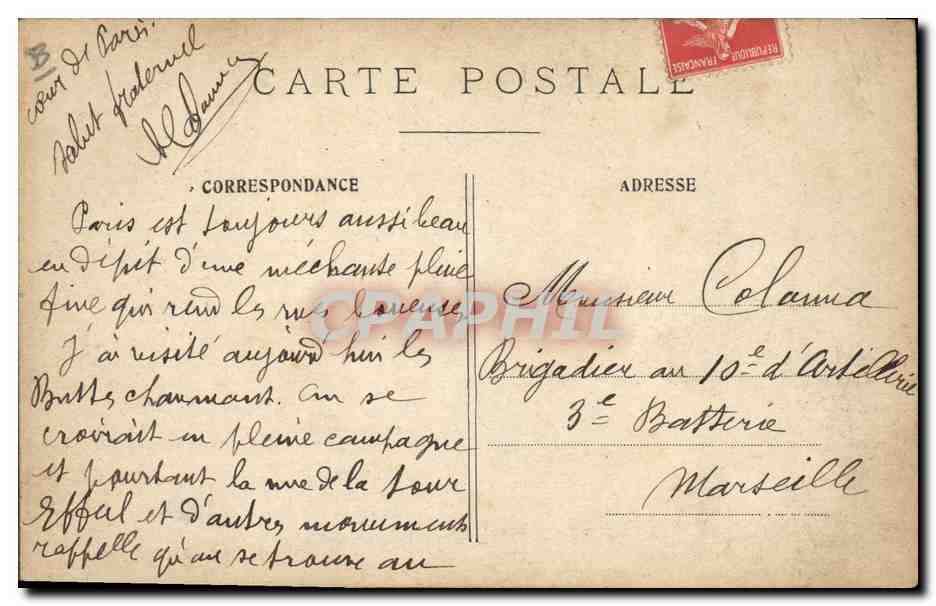 CARTE POSTALE
REPUBLIQUE FRANÇAISE
B
CORRESPONDANCE
Paris est toujours aussi beau
en dépit d'une méchante pluie
fine qui rend les rues boueuses
J'ai visité aujourd'hui les
Buttes chaumont. On se
croirait en pleine campagne
et pourtant la vue de la tour
Effel et d'autres monuments
rappelle qu'on se trouve au
cœur de Paris.
Salut fraternel
ADRESSE
Monsieur Colonna
Brigadier au 10e d'Artillerie
3e Batterie
Marseille
CPAPHIL